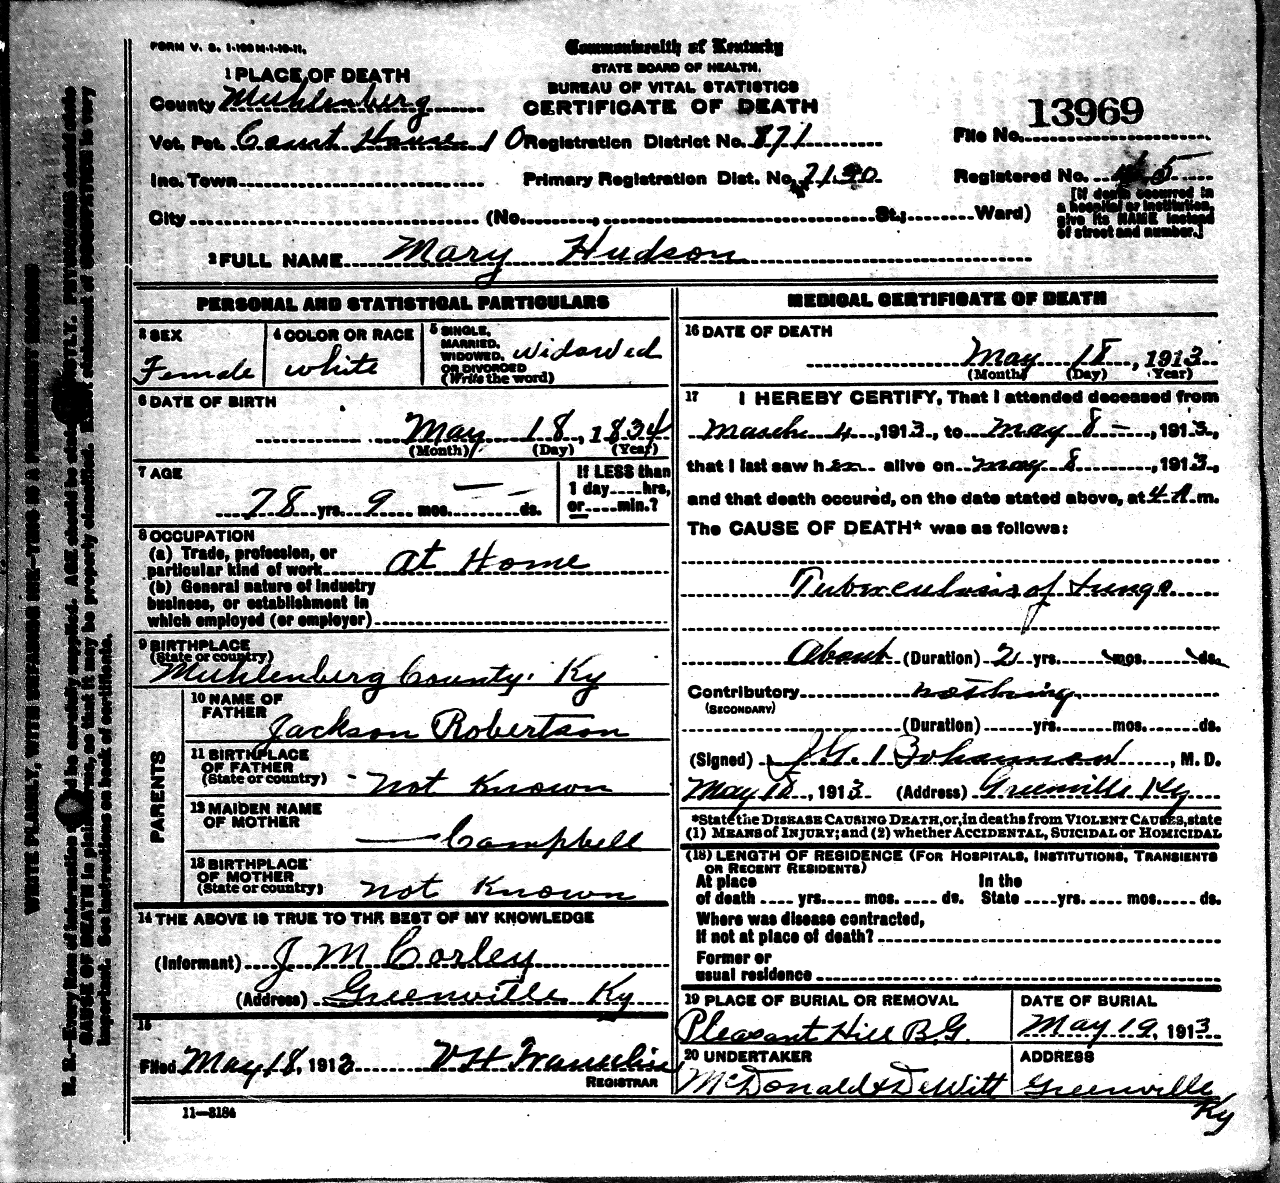 FORM V. S. 1-100 M-1-10-11.
Commonwealth of Kentucky
STATE BOARD OF HEALTH.
BUREAU OF VITAL STATISTICS
CERTIFICATE OF DEATH
1 PLACE OF DEATH
County Muhlenberg
Vot. Pct. Court House 10 Registration District No. 871
File No. 13969
Inc. Town Primary Registration Dist. No. 7190
Registered No. 45
City (No. , St.; Ward)
[If death occurred in
a hospital or institution,
give its NAME instead
of street and number.]
2 FULL NAME Mary Hudson
PERSONAL AND STATISTICAL PARTICULARS
3 SEX
Female
4 COLOR OR RACE
white
5 SINGLE,
MARRIED,
WIDOWED,
OR DIVORCED
(Write the word)
widowed
6 DATE OF BIRTH
May 18, 1834
(Month) (Day) (Year)
7 AGE
78 yrs. 9 mos. — ds.
If LESS than
1 day....hrs,
or....min.?
8 OCCUPATION
(a) Trade, profession, or
particular kind of work At Home
(b) General nature of industry
business, or establishment in
which employed (or employer)
9 BIRTHPLACE
(State or country)
Muhlenberg County. Ky
PARENTS
10 NAME OF
FATHER
Jackson Robertson
11 BIRTHPLACE
OF FATHER
(State or country)
Not Known
12 MAIDEN NAME
OF MOTHER
— Campbell
13 BIRTHPLACE
OF MOTHER
(State or country)
not Known
14 THE ABOVE IS TRUE TO THE BEST OF MY KNOWLEDGE
(Informant) J M Corley
(Address) Greenville Ky
15
Filed May 18, 1913 V H
REGISTRAR
11—3184
MEDICAL CERTIFICATE OF DEATH
16 DATE OF DEATH
May 18, 1913
(Month) (Day) (Year)
17 I HEREBY CERTIFY, That I attended deceased from
March 4, 1913, to May 8 —, 1913,
that I last saw her alive on May 8, 1913,
and that death occured, on the date stated above, at 4 A. m.
The CAUSE OF DEATH* was as follows:
Tuberculosis of Lungs
About (Duration) 2 yrs. mos. ds.
Contributory nothing
(SECONDARY)
(Duration) yrs. mos. ds.
(Signed) J. G. Bohannon, M. D.
May 18, 1913 (Address) Greenville Ky
*State the DISEASE CAUSING DEATH, or, in deaths from VIOLENT CAUSES, state
(1) MEANS of INJURY; and (2) whether ACCIDENTAL, SUICIDAL or HOMICIDAL
(18) LENGTH OF RESIDENCE (FOR HOSPITALS, INSTITUTIONS, TRANSIENTS
OR RECENT RESIDENTS)
At place
of death yrs. mos. ds.
In the
State yrs. mos. ds.
Where was disease contracted,
If not at place of death?
Former or
usual residence
19 PLACE OF BURIAL OR REMOVAL
Pleasant Hill B.G.
DATE OF BURIAL
May 19, 1913
20 UNDERTAKER
McDonald & DeWitt
ADDRESS
Greenville
Ky
WRITE PLAINLY, WITH UNFADING INK—THIS IS A PERMANENT RECORD
N. B.—Every item of information be carefully supplied. AGE should be stated EXACTLY. PHYSICIANS should state
CAUSE OF DEATH in plain terms, so that it may be properly classified. Exact statement of OCCUPATION is very
important. See instructions on back of certificate.